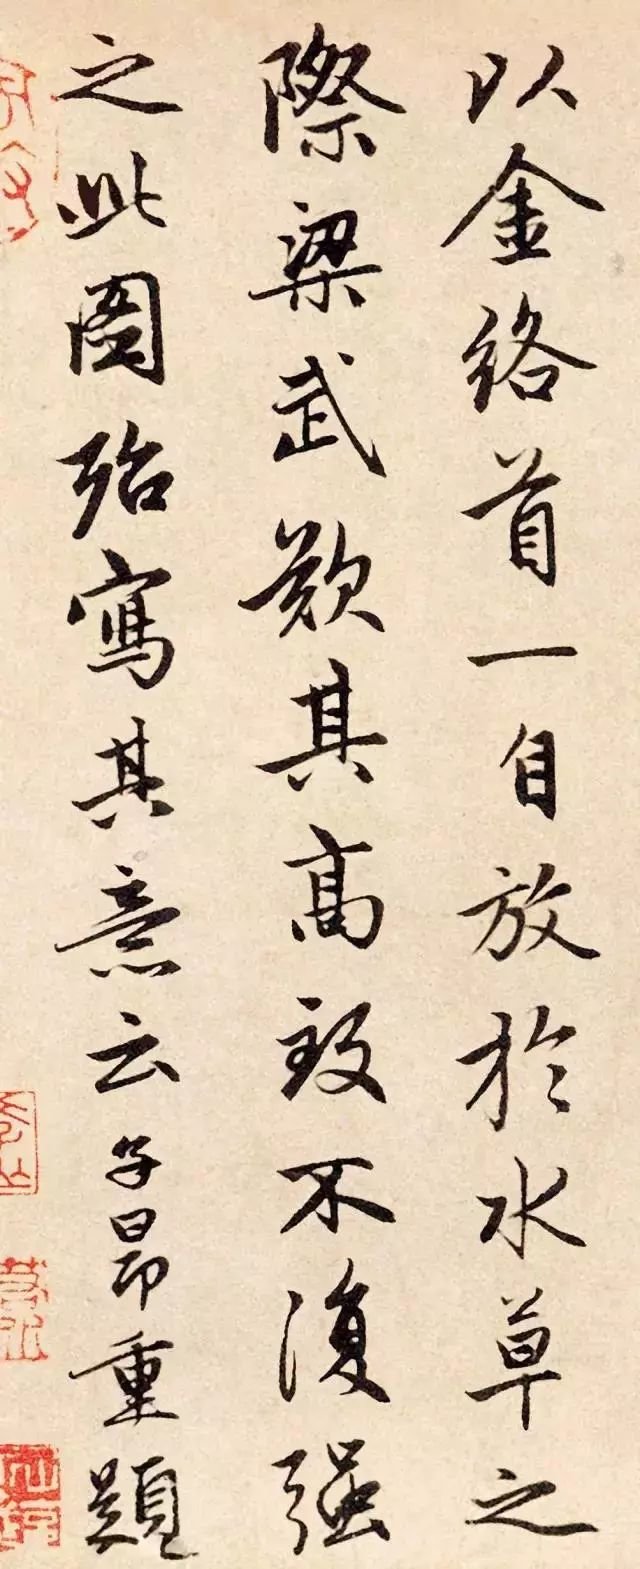 以金络首一自放於水草之
際梁武歎其高致不復强
之此图殆寫其意云子昂重題